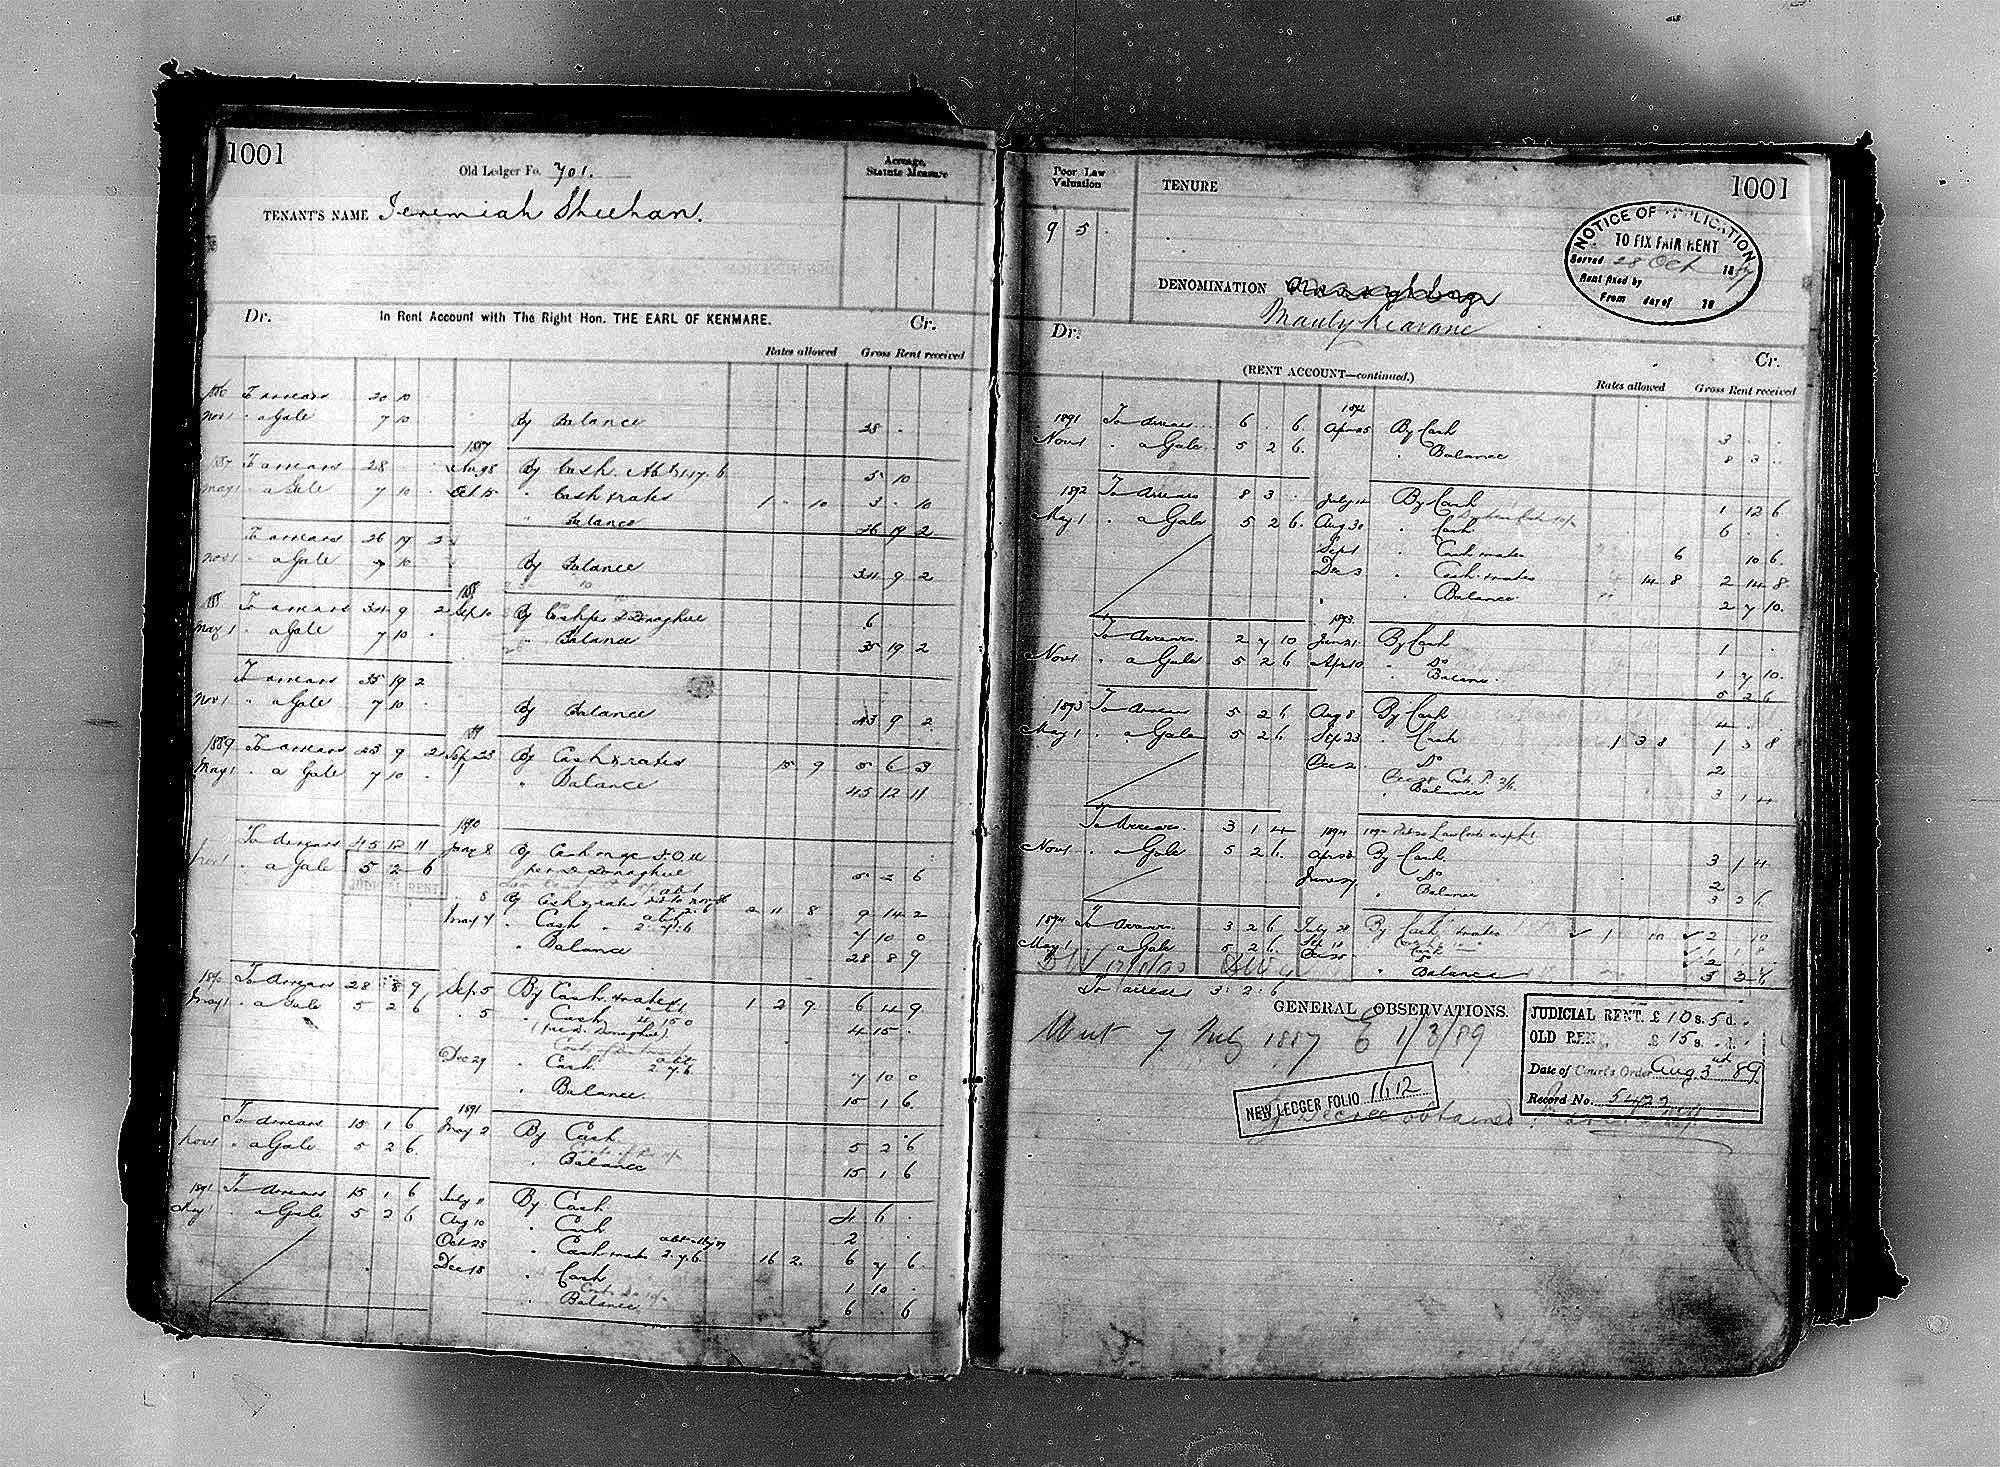 1001
Old Ledger Fo. 701.
Acreage, Statute Measure
TENANT'S NAME Jeremiah Sheehan.
Dr. In Rent Account with The Right Hon. THE EARL OF KENMARE. Cr.
Rates allowed Gross Rent received
To arrears 20 10
Nov 1 " a Gale 7 10 By Balance 28 .
1887
To arrears 28 Aug 8 By Cash 5 10
May 1 " a Gale 7 10 . Oct 15 " Cash & rates 1 . 10 3 . 10
" Balance 26 19 2
To arrears 26 19 2
Nov 1 " a Gale 7 10 By Balance 34 9 2
1888
To arrears 34 9 2 Sep 10 By Cash per D Donaghue 6
May 1 " a Gale 7 10 . " Balance 35 19 2
To arrears 35 19 2
Nov 1 " a Gale 7 10 By Balance 43 9 2
1889 To arrears 43 9 2 Sep 23 By Cash & rates 15 9 5 6 3
May 1 " a Gale 7 10 . " Balance 45 12 11
1890
To arrears 45 12 11 May 8 By Cash
Nov 1 " a Gale 5 2 6 per D Donaghue 5 2 6
JUDICIAL RENT
8 By Cash & rates 2 11 8 9 14 2
May 7 " Cash 2.7.6 7 10 0
" Balance 28 8 9
1890 To Arrears 28 8 9 Sep 5 By Cash & rates 1 2 9 6 4 9
May 1 " a Gale 5 2 6 " 5 " Cash 4 15 0 4 15 .
(per D. Donaghue)
Dec 29 " Cash 2.7.6 7 10 0
" Balance 15 1 6
1891
To Arrears 15 1 6 May 2 By Cash 5 2 6
Nov 1 " a Gale 5 2 6 " Balance 15 1 6
1891 To Arrears 15 1 6 July 11 By Cash 4 6 .
May 1 " a Gale 5 2 6 Aug 10 " Cash 2 .
Oct 25 " Cash & rates 2.7.6 16 2 6 7 6
Dec 18 " Cash 1 10 .
" Balance 6 6
Poor Law Valuation
9 5 .
TENURE
1001
NOTICE OF APPLICATION
TO FIX FAIR RENT
Served 28 Oct 1887
Rent fixed by
From day of 18
DENOMINATION
Dr. Cr.
(RENT ACCOUNT—continued.)
Rates allowed Gross Rent received
1892
1891 To Arrears 6 6 Apr 25 By Cash 3 . .
Nov 1 " a Gale 5 2 6 " Balance 8 3 .
1892 To Arrears 8 3 . July 12 By Cash 1 12 6
May 1 " a Gale 5 2 6 Aug 30 " Cash 6 . .
Sep 1 " Cash & rates 6 10 6
Dec 3 " Cash & rates 14 8 2 14 8
" Balance 2 7 10
1893
To Arrears 2 7 10 Jan 21 By Cash 1 .
Nov 1 " a Gale 5 2 6 Apr 10 " Do 1 7 10
" Balance 5 2 6
1893 To Arrears 5 2 6 Aug 8 By Cash 4 . .
May 1 " a Gale 5 2 6 Sep 23 " Cash 1 3 8 1 3 8
Dec 2 " Do 2
" Balance 3 1 4
To Arrears 3 1 4 1894
Nov 1 " a Gale 5 2 6 By Cash 3 1 4
June 27 " Do 2
" Balance 3 2 6
1894 To Arrears 3 2 6 July 28 By Cash & rates 1 10 2 10
May 1 " a Gale 5 2 6
" Balance 3 2 6
To arrears 3 : 2 : 6
GENERAL OBSERVATIONS.
Writ 7 July 1887 E 1/3/89
JUDICIAL RENT. £10 s. 5 d.
OLD RENT. £15 s. d.
Date of Court's Order Aug 3rd 89
Record No. 5422
NEW LEDGER FOLIO 1612
Decree obtained